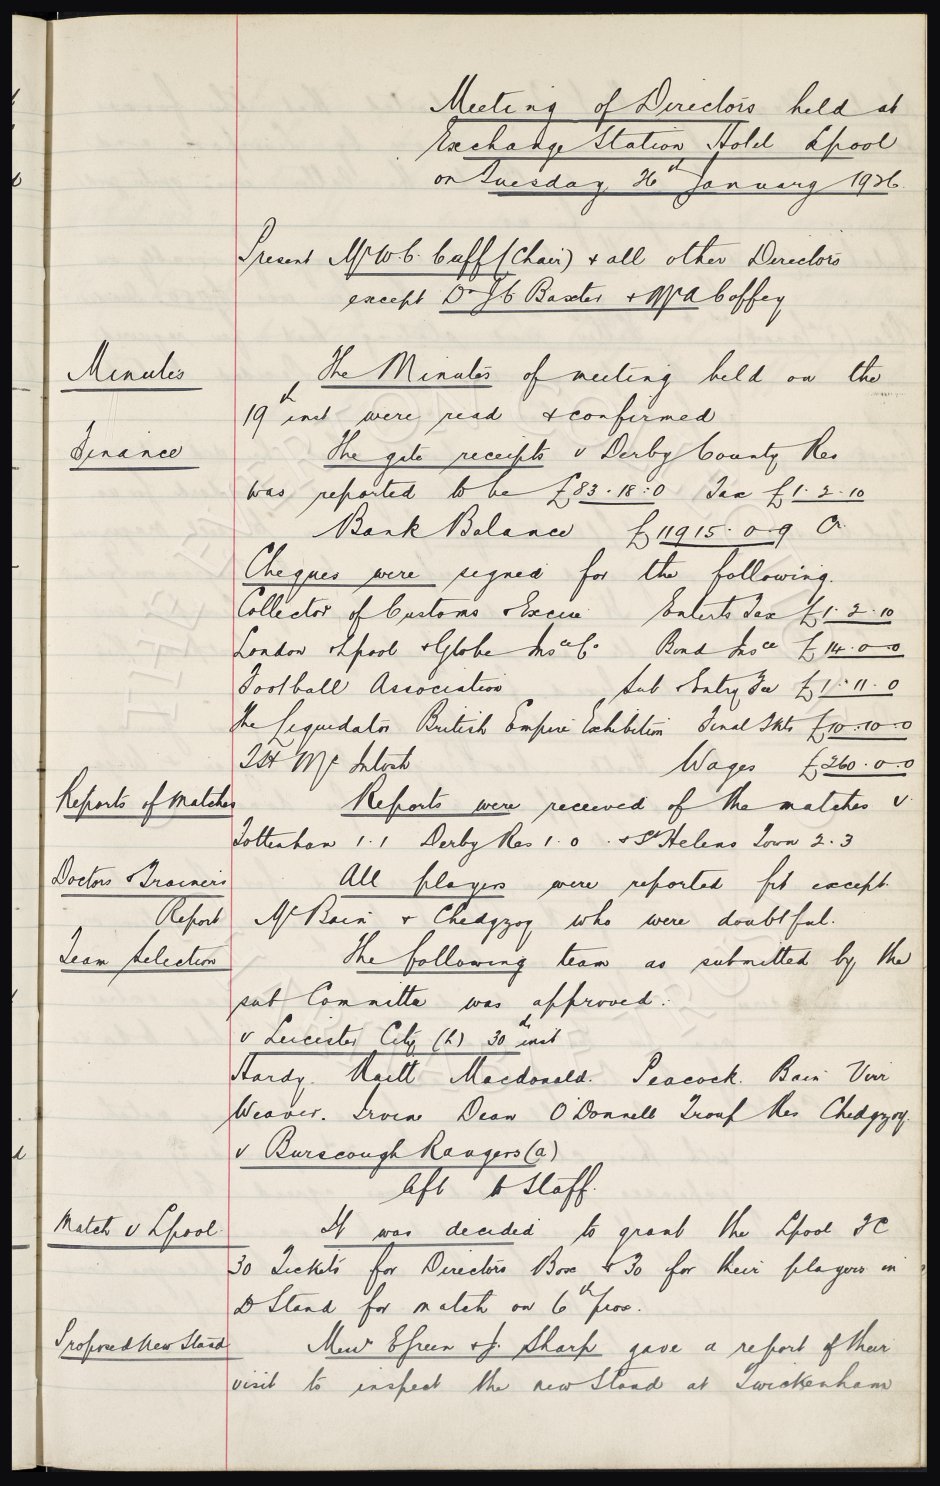 Meeting of Directors held at
Exchange Station Hotel Lpool
on Tuesday 26th January 1926.
Present Mr W C Cuff (Chair) + all other Directors
except Dr J C Baxter + Mr A Coffey
Minutes The Minutes of meeting held on the
19th inst were read & confirmed
Finance The gate receipts v Derby County Res
was reported to be £83.18.0 Tax £1.2.10
Bank Balance £11915.0.9 Cr
Cheques were signed for the following.
Collector of Customs & Excise Enterts Tax £1.2.10
London Lpool & Globe Insce Co Bond Insce £14.0.0
Football Association Sub & Entry Fee £1.11.0
The Liquidator British Empire Exhibition Final Tkts £10.10.0
T H McIntosh Wages £260.0.0
Reports of Matches Reports were received of the matches v
Tottenham 1.1 Derby Res 1.0 & St Helens Town 2.3
Doctors & Trainers All players were reported fit except
Report Mc Bain & Chedgzoy who were doubtful.
Team Selection The following team as submitted by the
sub Committee was approved.
v Leicester City (h) 30th inst
Hardy. Raitt Macdonald. Peacock. Bain Virr
Weaver. Irvine Dean O'Donnell Troup Res Chedgzoy.
v Burscough Rangers (a)
left to Staff.
Match v Lpool It was decided to grant the Lpool FC
30 Tickets for Directors Box & 30 for their players in
D Stand for match on 6th prox.
Proposed New Stand Messrs E Green & J. Sharp gave a report of their
visit to inspect the new Stand at Twickenham